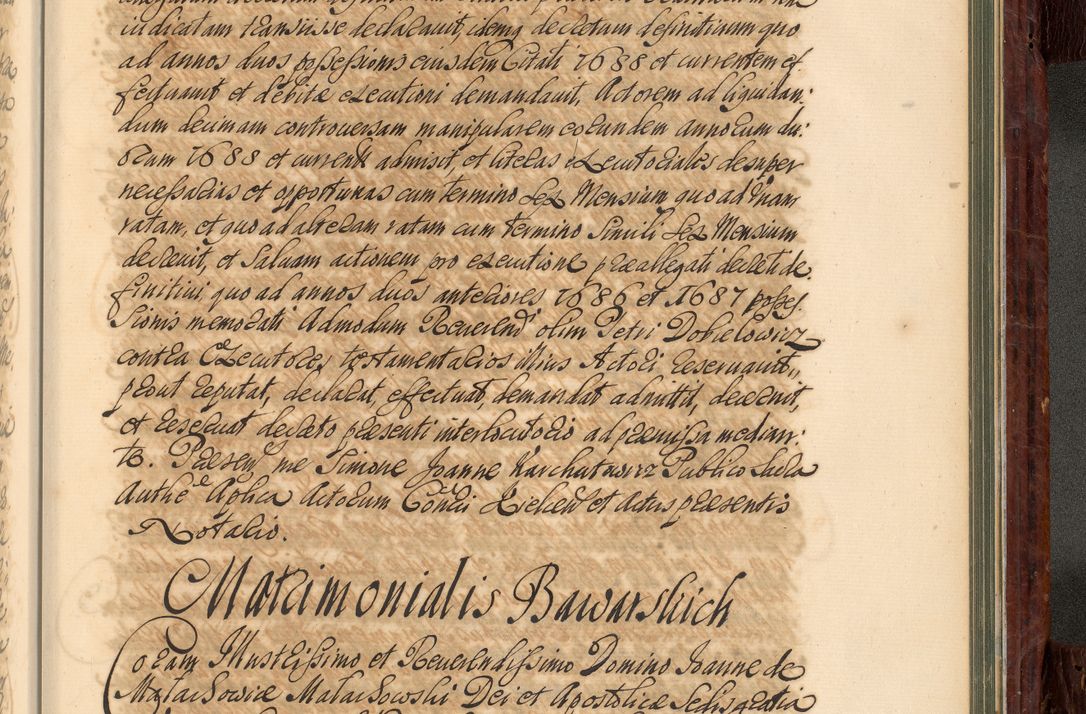 iudicatam transiisse declaravit, idemq decretum definitivum quo
ad annos duos possessionis eiusdem Citati 1688 et currentem ef
fectuavit et debitæ executioni demandavit, Actorem ad liquidan:
dum decimam controversam manipularem eorundem annorum du:
orum 1688 et currentis admisit, et literas executoriales desuper
necessarias et opportunas cum termino sex Mensium quo ad unam
ratam, et quo ad alteram ratam cum termino simili sex Mensium
decrevit, et salvam actionem pro executione præallegati decreti de
finitivi quo ad annos duos anteriores 1686 et 1687 posses
sionis memorati Admodum Reverendi olim Petri Dobielowicz
contra Executores testamentarios illius Actori reservavit,
prout reputat, declarat, effectuat, demandat admittit, decernit,
et reservat decreto præsenti interlocutorio ad præmissa median:
te. Præsen me Simone Joanne Karchutowicz Publico Sacra
Authe Aplica Actorum Consii Kielcen et actus præsentis
Notario.
Matrimonialis Bawarskich
Coram Illustrissimo et Reverendissimo Domino Joanne de
Małachowice Małachowski Dei et Apostolicæ Sedis gratia